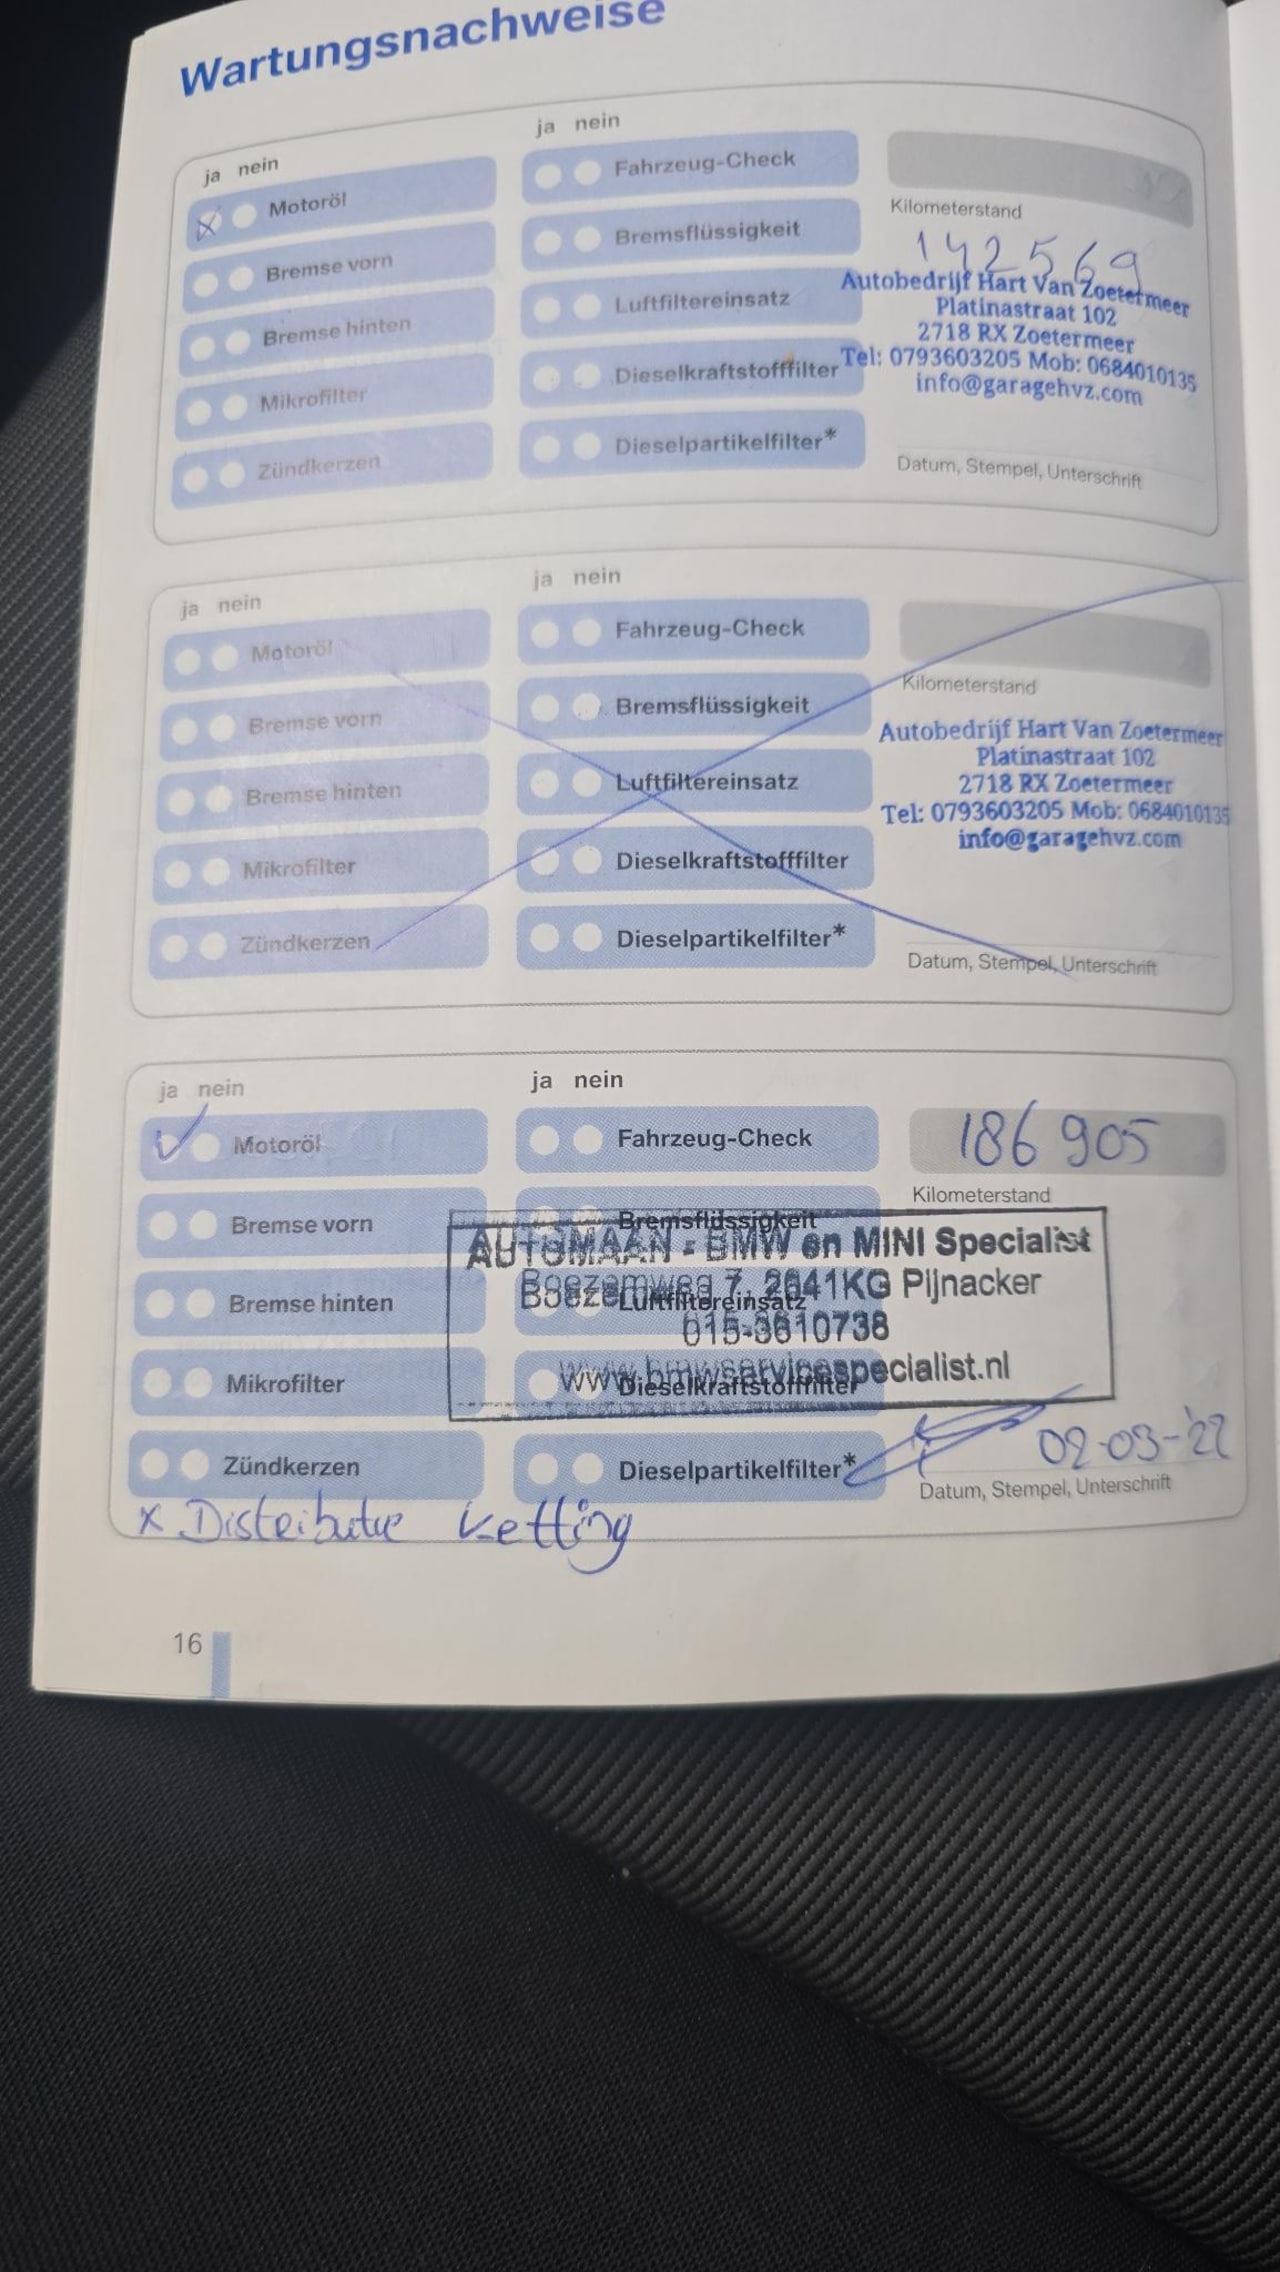 Wartungsnachweise
ja nein
Motoröl
Bremse vorn
Bremse hinten
Mikrofilter
Zündkerzen
ja nein
Fahrzeug-Check
Bremsflüssigkeit
Luftfiltereinsatz
Dieselkraftstofffilter
Dieselpartikelfilter*
Kilometerstand
142569
Autobedrijf Hart Van Zoetermeer
Platinastraat 102
2718 RX Zoetermeer
Tel: 0793603205 Mob: 0684010135
info@garagehvz.com
Datum, Stempel, Unterschrift
ja nein
Motoröl
Bremse vorn
Bremse hinten
Mikrofilter
Zündkerzen
ja nein
Fahrzeug-Check
Bremsflüssigkeit
Luftfiltereinsatz
Dieselkraftstofffilter
Dieselpartikelfilter*
Kilometerstand
Autobedrijf Hart Van Zoetermeer
Platinastraat 102
2718 RX Zoetermeer
Tel: 0793603205 Mob: 0684010135
info@garagehvz.com
Datum, Stempel, Unterschrift
ja nein
Motoröl
Bremse vorn
Bremse hinten
Mikrofilter
Zündkerzen
ja nein
Fahrzeug-Check
Bremsflüssigkeit
Luftfiltereinsatz
Dieselkraftstofffilter
Dieselpartikelfilter*
186 905
Kilometerstand
AUTOMAAN - BMW en MINI Specialist
Boezemweg 7, 2641KG Pijnacker
015-3610738
www.bmwservicespecialist.nl
02-03-'22
Datum, Stempel, Unterschrift
x Distributie ketting
16